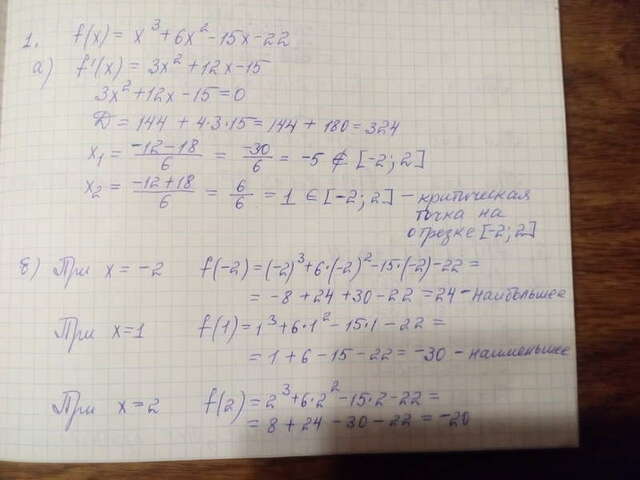 1. f(x) = x³ + 6x² - 15x - 22
а) f'(x) = 3x² + 12x - 15
3x² + 12x - 15 = 0
D = 144 + 4·3·15 = 144 + 180 = 324
x₁ = (-12-18)/6 = -30/6 = -5 ∉ [-2; 2]
x₂ = (-12+18)/6 = 6/6 = 1 ∈ [-2; 2] - критическая
точка на
отрезке [-2; 2]
б) При x = -2 f(-2) = (-2)³ + 6·(-2)² - 15·(-2) - 22 =
= -8 + 24 + 30 - 22 = 24 - наибольшее
При x = 1 f(1) = 1³ + 6·1² - 15·1 - 22 =
= 1 + 6 - 15 - 22 = -30 - наименьшее
При x = 2 f(2) = 2³ + 6·2² - 15·2 - 22 =
= 8 + 24 - 30 - 22 = -20